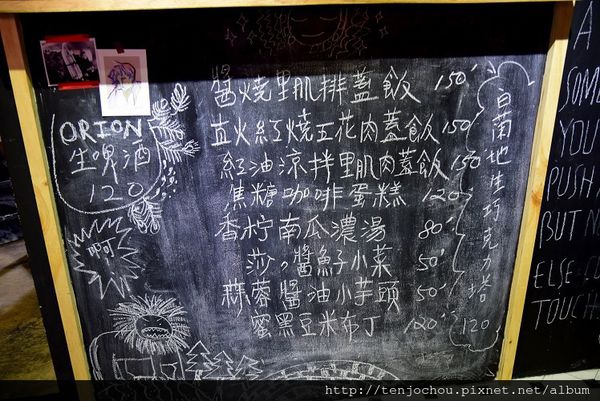 ORION
生啤酒
120
呵
醬燒里肌排蓋飯 150
直火紅燒五花肉蓋飯 150
紅油涼拌里肌肉蓋飯 150
焦糖咖啡蛋糕 120
香柠南瓜濃湯 80
莎。醬魚子小菜 50
蒜蓉醬油小芋頭 50
蜜黑豆米布丁 120
白蘭地佳巧克力塔 120
A
SOM
YOU
PUSH
BUT N
ELSE
TOUCH
http://tenjochou.pixnet.net/album